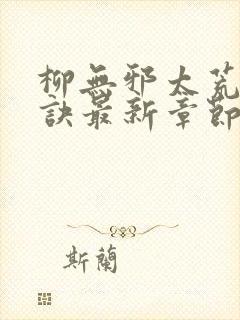 柳無邪太荒
訣最新章節
斯蘭